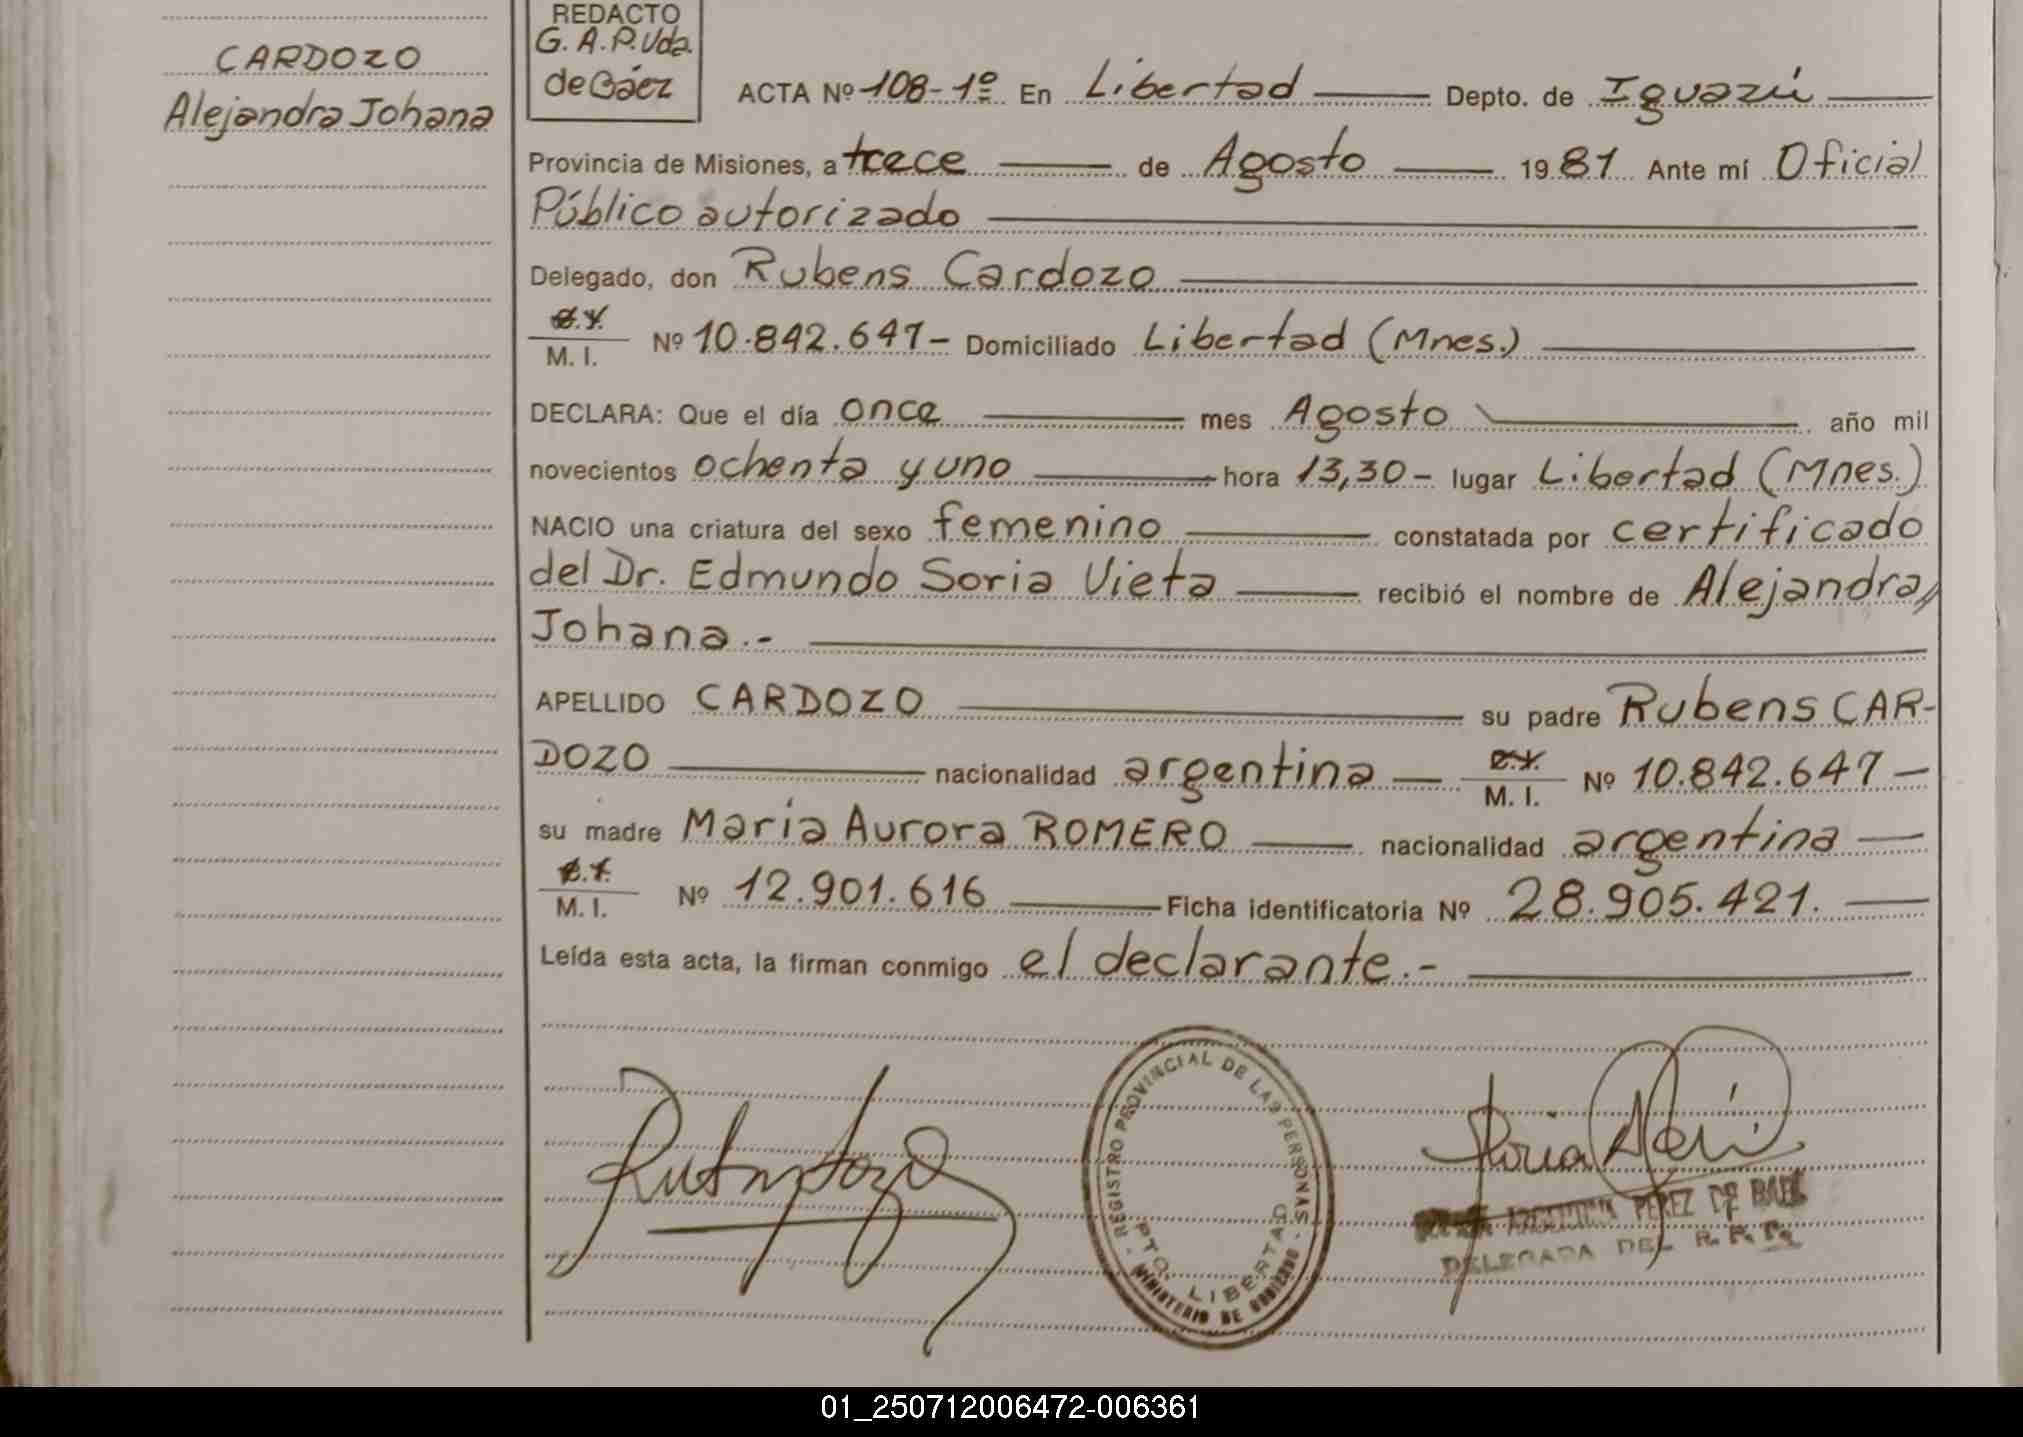 CARDOZO
Alejandra Johana
REDACTO
G. A. P. Vda.
de Báez
ACTA Nº 108-1º En Libertad Depto. de Iguazú
Provincia de Misiones, a trece de Agosto 1981 Ante mí Oficial
Público autorizado
Delegado, don Rubens Cardozo
M. I. Nº 10.842.647- Domiciliado Libertad (Mnes.)
DECLARA: Que el día once mes Agosto año mil
novecientos ochenta y uno hora 13,30- lugar Libertad (Mnes.)
NACIO una criatura del sexo femenino constatada por certificado
del Dr. Edmundo Soria Vieta recibió el nombre de Alejandra
Johana.-
APELLIDO CARDOZO su padre Rubens CAR-
DOZO nacionalidad argentina M. I. Nº 10.842.647-
su madre María Aurora ROMERO nacionalidad argentina
M. I. Nº 12.901.616 Ficha identificatoria Nº 28.905.421.
Leída esta acta, la firman conmigo el declarante.-
- REGISTRO PROVINCIAL DE LAS PERSONAS -
PTO. LIBERTAD
MINISTERIO DE GOBIERNO
ARGENTINA PEREZ DE BAEZ
DELEGADA DEL R. P. P.
01_250712006472-006361